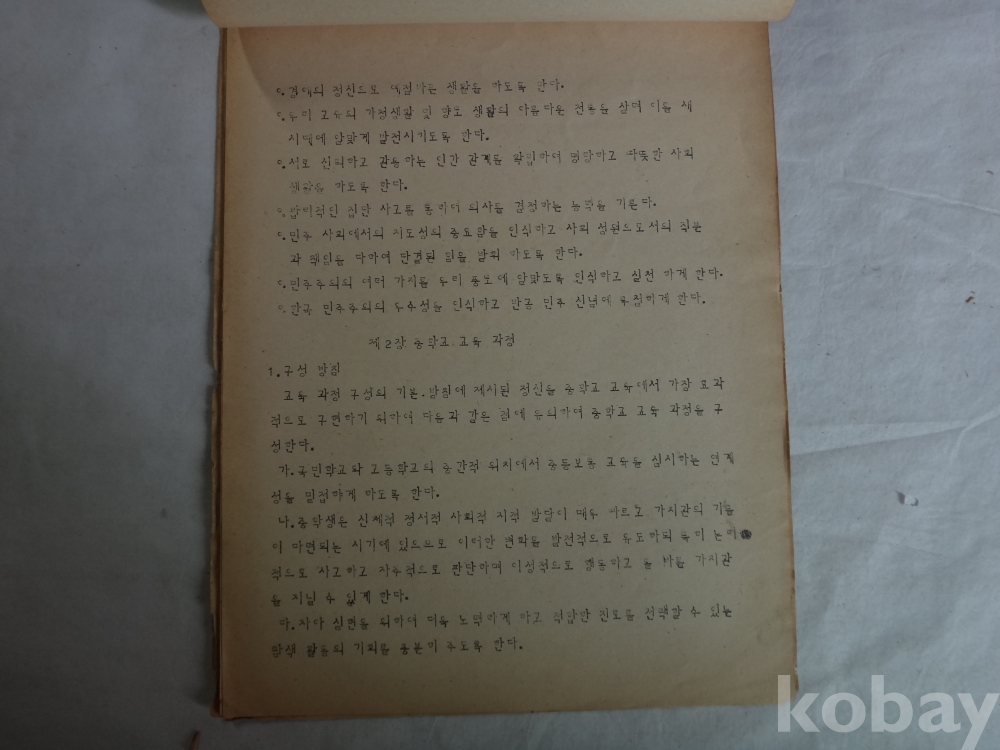 ㅇ.겸애의 정신으로 예절바른 생활을 하도록 한다.
ㅇ.우리 고유의 가정생활 및 향토 생활의 아름다운 전통을 살려 이를 새
시대에 알맞게 발전시키도록 한다.
ㅇ.서로 신뢰하고 관용하는 인간 관계를 확립하여 명랑하고 따뜻한 사회
생활을 하도록 한다.
ㅇ.합리적인 집단 사고를 통하여 의사를 결정하는 능력을 기른다.
ㅇ.민주 사회에서의 지도성의 중요함을 인식하고 사회 성원으로서의 직분
과 책임을 다하며 단결된 힘을 발휘 하도록 한다.
ㅇ.민주주의의 여러 가치를 우리 풍토에 알맞도록 인식하고 실천 하게 한다.
ㅇ.한국 민주주의의 우수성을 인식하고 반공 민주 신념에 투철하게 한다.
제2장 중학교 교육 과정
1.구성 방침
교육 과정 구성의 기본.방침에 제시된 정신을 중학교 교육에서 가장 효과
적으로 구현하기 위하여 다음과 같은 점에 유의하여 중학교 교육 과정을 구
성한다.
가.국민학교와 고등학교의 중간적 위치에서 중등보통 교육을 실시하는 연계
성을 밀접하게 하도록 한다.
나.중학생은 신체적 정서적 사회적 지적 발달이 매우 빠르고 가치관의 기틀
이 마련되는 시기에 있으므로 이러한 변화를 발전적으로 유도하되 특히 논리
적으로 사고하고 자주적으로 판단하며 이성적으로 행동하고 올 바른 가치관
을 지닐 수 있게 한다.
다.자아 실현을 위하여 더욱 노력하게 하고 적합한 진로를 선택할 수 있는
학생 활동의 기회를 충분히 주도록 한다.
kobay